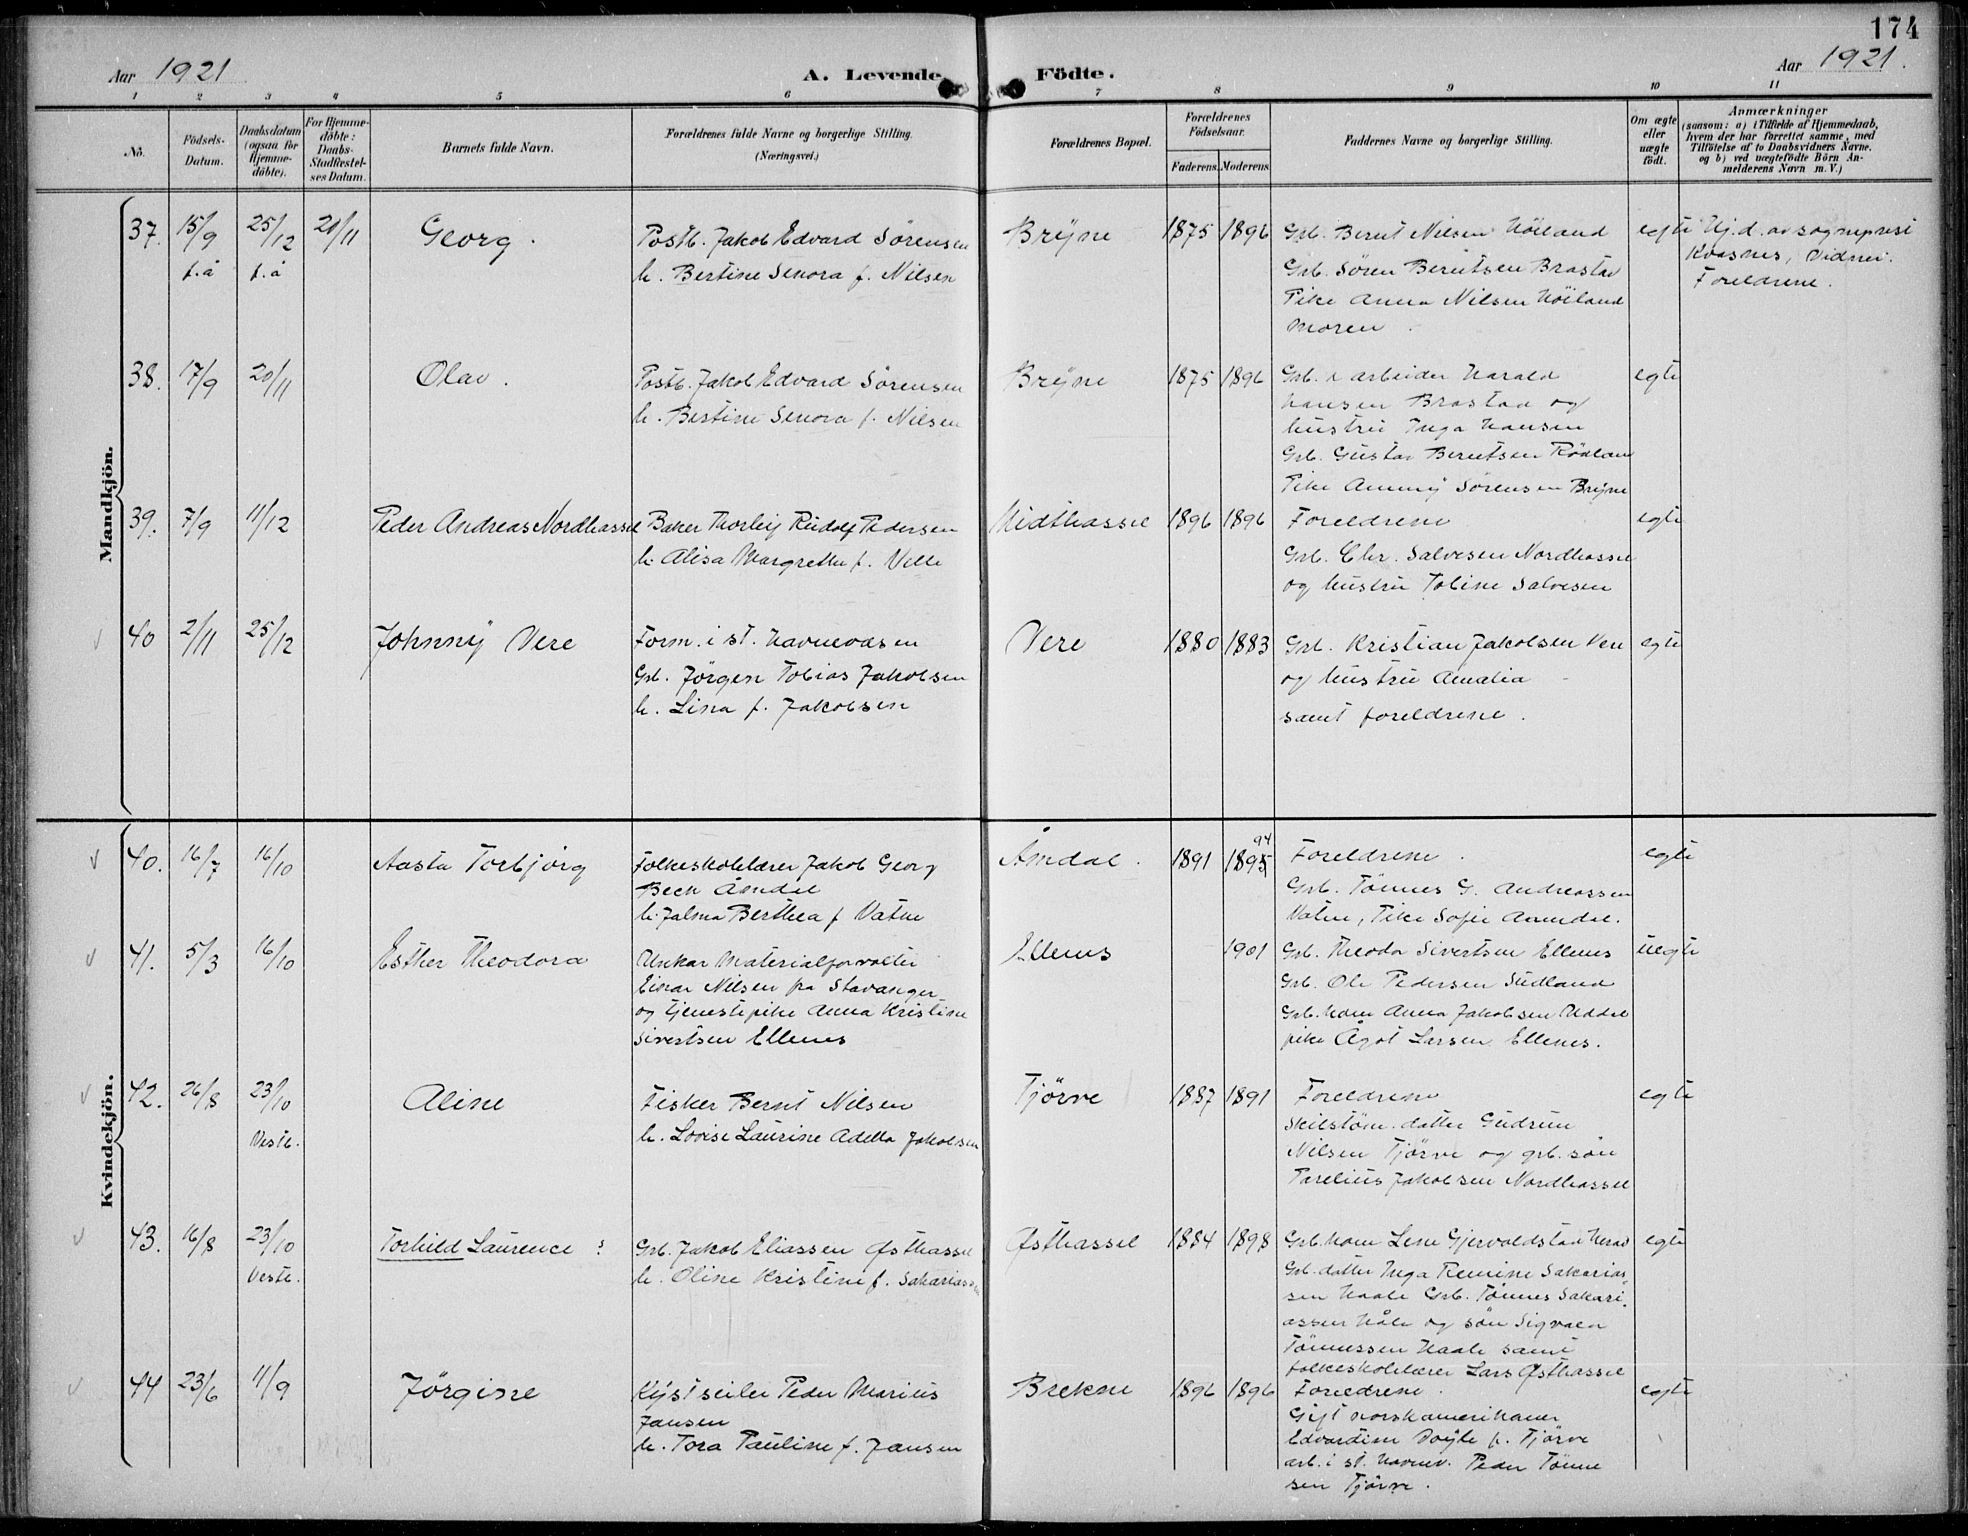 174
Aar 1921
A. Levende Födte.
Aar 1921.
1 2 3 4 5 6 7 8 9 10 11
No.
Födsels-
Datum.
Daabsdatum
(ogsaa for
Hjemme-
döbte).
For Hjemme-
döbte:
Daabs-
Stadfæstel-
ses Datum.
Barnets fulde Navn.
Forældrenes fulde Navne og borgerlige Stilling.
(Næringsvei.)
Forældrenes Bopæl.
Forældrenes
Födselsaar.
Faderens. Moderens.
Faddernes Navne og borgerlige Stilling.
Om ægte
eller
uægte
födt.
Anmærkninger
(saasom: a) i Tilfælde af Hjemmedaab,
hvem der har forrettet samme, med
Tilföielse af to Daabsvidners Navne,
og b) ved uægtefödte Börn An-
melderens Navn m. V.)
Mandkjön.
37. 15/9 25/12 20/11 Georg.
f.å f.å
Postb. Jakob Edvard Sörensen
h. Bertine Senora f. Nilsen
Bryne 1875 1896
Grb. Bernt Nilsen Höiland
Grb. Sören Berntsen Brastad
Pike Anna Nilsen Höiland
Moren
egte
Hj.d. av sogneprest
Kvasnes, Vidner:
Foreldrene.
38. 17/9 20/11 Olav.
Postb. Jakob Edvard Sörensen
h. Bertine Senora f. Nilsen
Bryne 1875 1896
Grb. & arbeider Harald
Hansen Brastad og
hustru Inga Hansen
Grb. Gustav Berntsen Rödland
Pike Ammy Sörensen Bryne
egte
39. 7/9 11/12 Peder Andreas Nordhassel
Baker Thorleif Rudolf Pedersen
h. Alisa Margrethe f. Velle
Midthassel 1896 1896
Foreldrene
Grb. Chr. Salvesen Nordhassel
og hustru Tobine Salvesen
egte
40 2/11 25/12 Johnny Vere
Form. i st. havnevæsen
Grb. Jörgen Tobias Jakobsen
h. Lina f. Jakobsen
Vere 1880 1883
Grb. Kristian Jakobsen Vere
og hustru Amalia
samt foreldrene.
egte
Kvindekjön.
40. 16/7 16/10 Aasta Torbjörg
Folkeskolelærer Jakob Georg
Beck Åmdal
h. Jalma Berthea f Vatne
Åmdal. 1891 1895 94
Foreldrene.
Grb. Tönnes G. Andreassen
Vatne, Pike Sofie Aamdal.
egte
41. 5/3 16/10 Esther Theodora
Unkar Materialforvalter
Einar Nilsen fra Stavanger
og tjenestepike Anna Kristine
Sivertsen Ellenes
Ellenes 1901
Grb. Theodor Sivertsen Ellenes
Grb. Ole Pedersen Sudland
Grb. kone Anna Jakobsen Uddal
pike Ågot Larsen Ellenes.
uegte
42. 26/8 23/10 Aline
Vestb.
Fisker Bernt Nilsen
h. Lovise Laurine Adella Jakobsen
Tjörve 1887 1891
Foreldrene
Skilstöm. datter Gudrun
Nilsen Tjörve og grb. sön
Parelius Jakobsen Nordhassel
egte
43. 16/8 23/10 Torhild Laurence
Vestb.
Grb. Jakob Eliassen Østhassel
h. Oline Kristine f. Sakariassen
Østhassel 1884 1898
Grb. kone Lene Gjervoldstad Herad
Grb. datter Inga Remine Sakarias
sen Haale Grb. Tönnes Sakari
assen Håle og sön Sigvald
Tönnessen Haale samt
folkeskolelærer Lars Østhassel
egte
44 23/6 11/9 Jörgine
Kystseiler Peder Marius
Jansen
h. Tora Pauline f. Jansen
Brekne 1896 1896
Foreldrene.
Gift norskamerikaner
Edvardine Doyle f. Tjörve
arb. i st. havnev. Peder Tönne
sen Tjörve.
egte